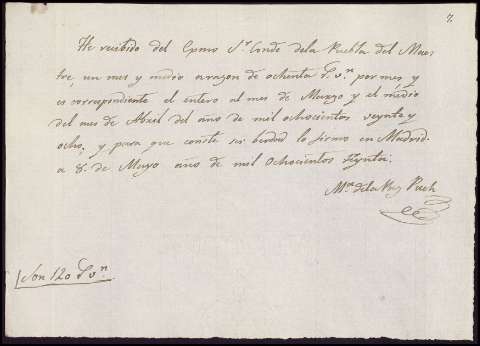 7.
He recibido del Exmo Sr. Conde dela Puebla del Maes
tre, un mes y medio arazon de ochenta rs. vn. por mes, y
es correspondiente el entero al mes de Marzo y el medio
del mes de Abril del año de mil ochocientos veynte y
ocho, y para que conste ser berdad lo firmo en Madrid.
a 8. de Mayo año de mil ochocientos
Ma. dela Paz Puch
Son 120 rs. vn.